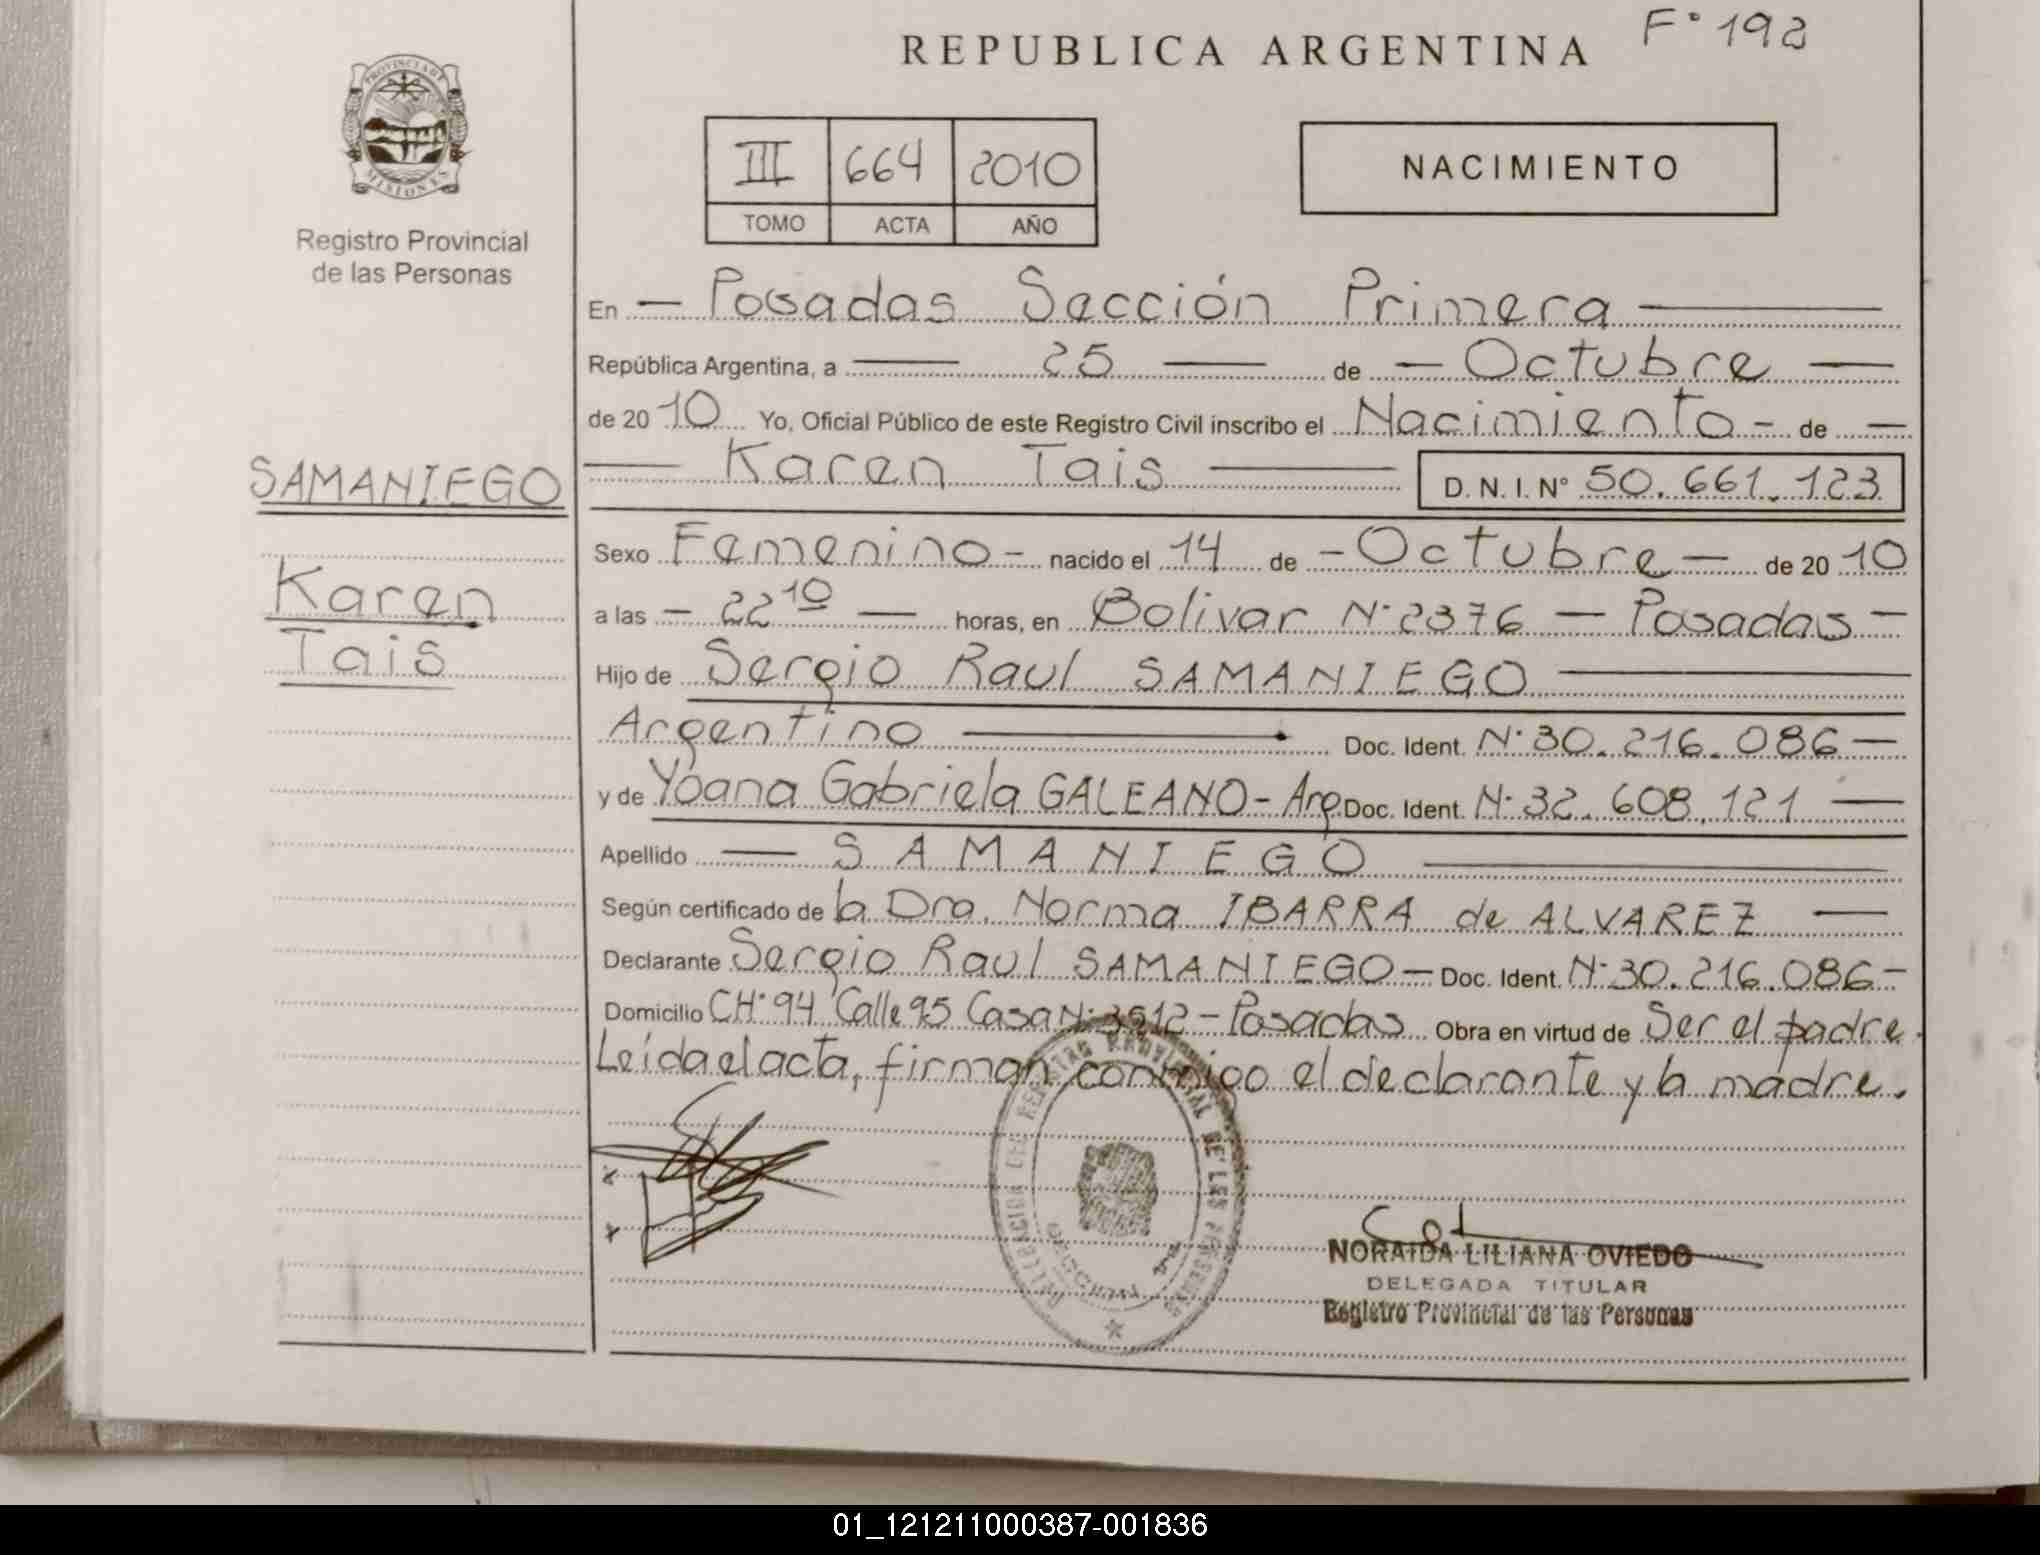 F° 192
REPUBLICA ARGENTINA
PROVINCIA DE MISIONES
Registro Provincial
de las Personas
III 664 2010
TOMO ACTA AÑO
NACIMIENTO
En — Posadas Sección Primera —
República Argentina, a — 25 — de — Octubre —
de 2010 Yo, Oficial Público de este Registro Civil inscribo el Nacimiento - de —
— Karen Tais — D. N. I. N° 50.661.123
SAMANIEGO
Karen
Tais
Sexo Femenino - nacido el 14 de - Octubre — de 2010
a las — 22 10 — horas, en Bolivar N° 2376 — Posadas —
Hijo de Sergio Raul SAMANIEGO —
Argentino — Doc. Ident. N° 30.216.086 —
y de Yoana Gabriela GALEANO - Arg. Doc. Ident. N° 32.608.121 —
Apellido — SAMANIEGO —
Según certificado de la Dra. Norma IBARRA de ALVAREZ —
Declarante Sergio Raul SAMANIEGO — Doc. Ident. N° 30.216.086 -
Domicilio CH° 94 Calle 95 Casa N° 3912 - Posadas Obra en virtud de Ser el padre.
Leída el acta, firman conmigo el declarante y la madre.
DELEGACION DEL REGISTRO PROVINCIAL DE LAS PERSONAS
NORAIDA LILIANA OVIEDO
DELEGADA TITULAR
Registro Provincial de las Personas
01_121211000387-001836